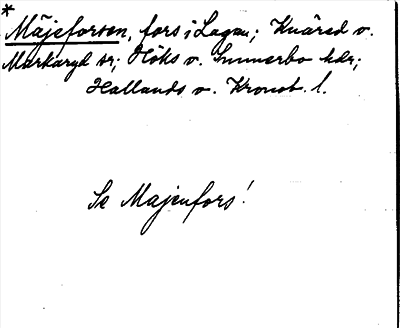 *
Mäjeforsen, fors i Lagan; Knäred o.
Markaryd sr; Höks o. Sunnerbo hdr;
Hallands o. Kronob. l.
Se Majenfors!